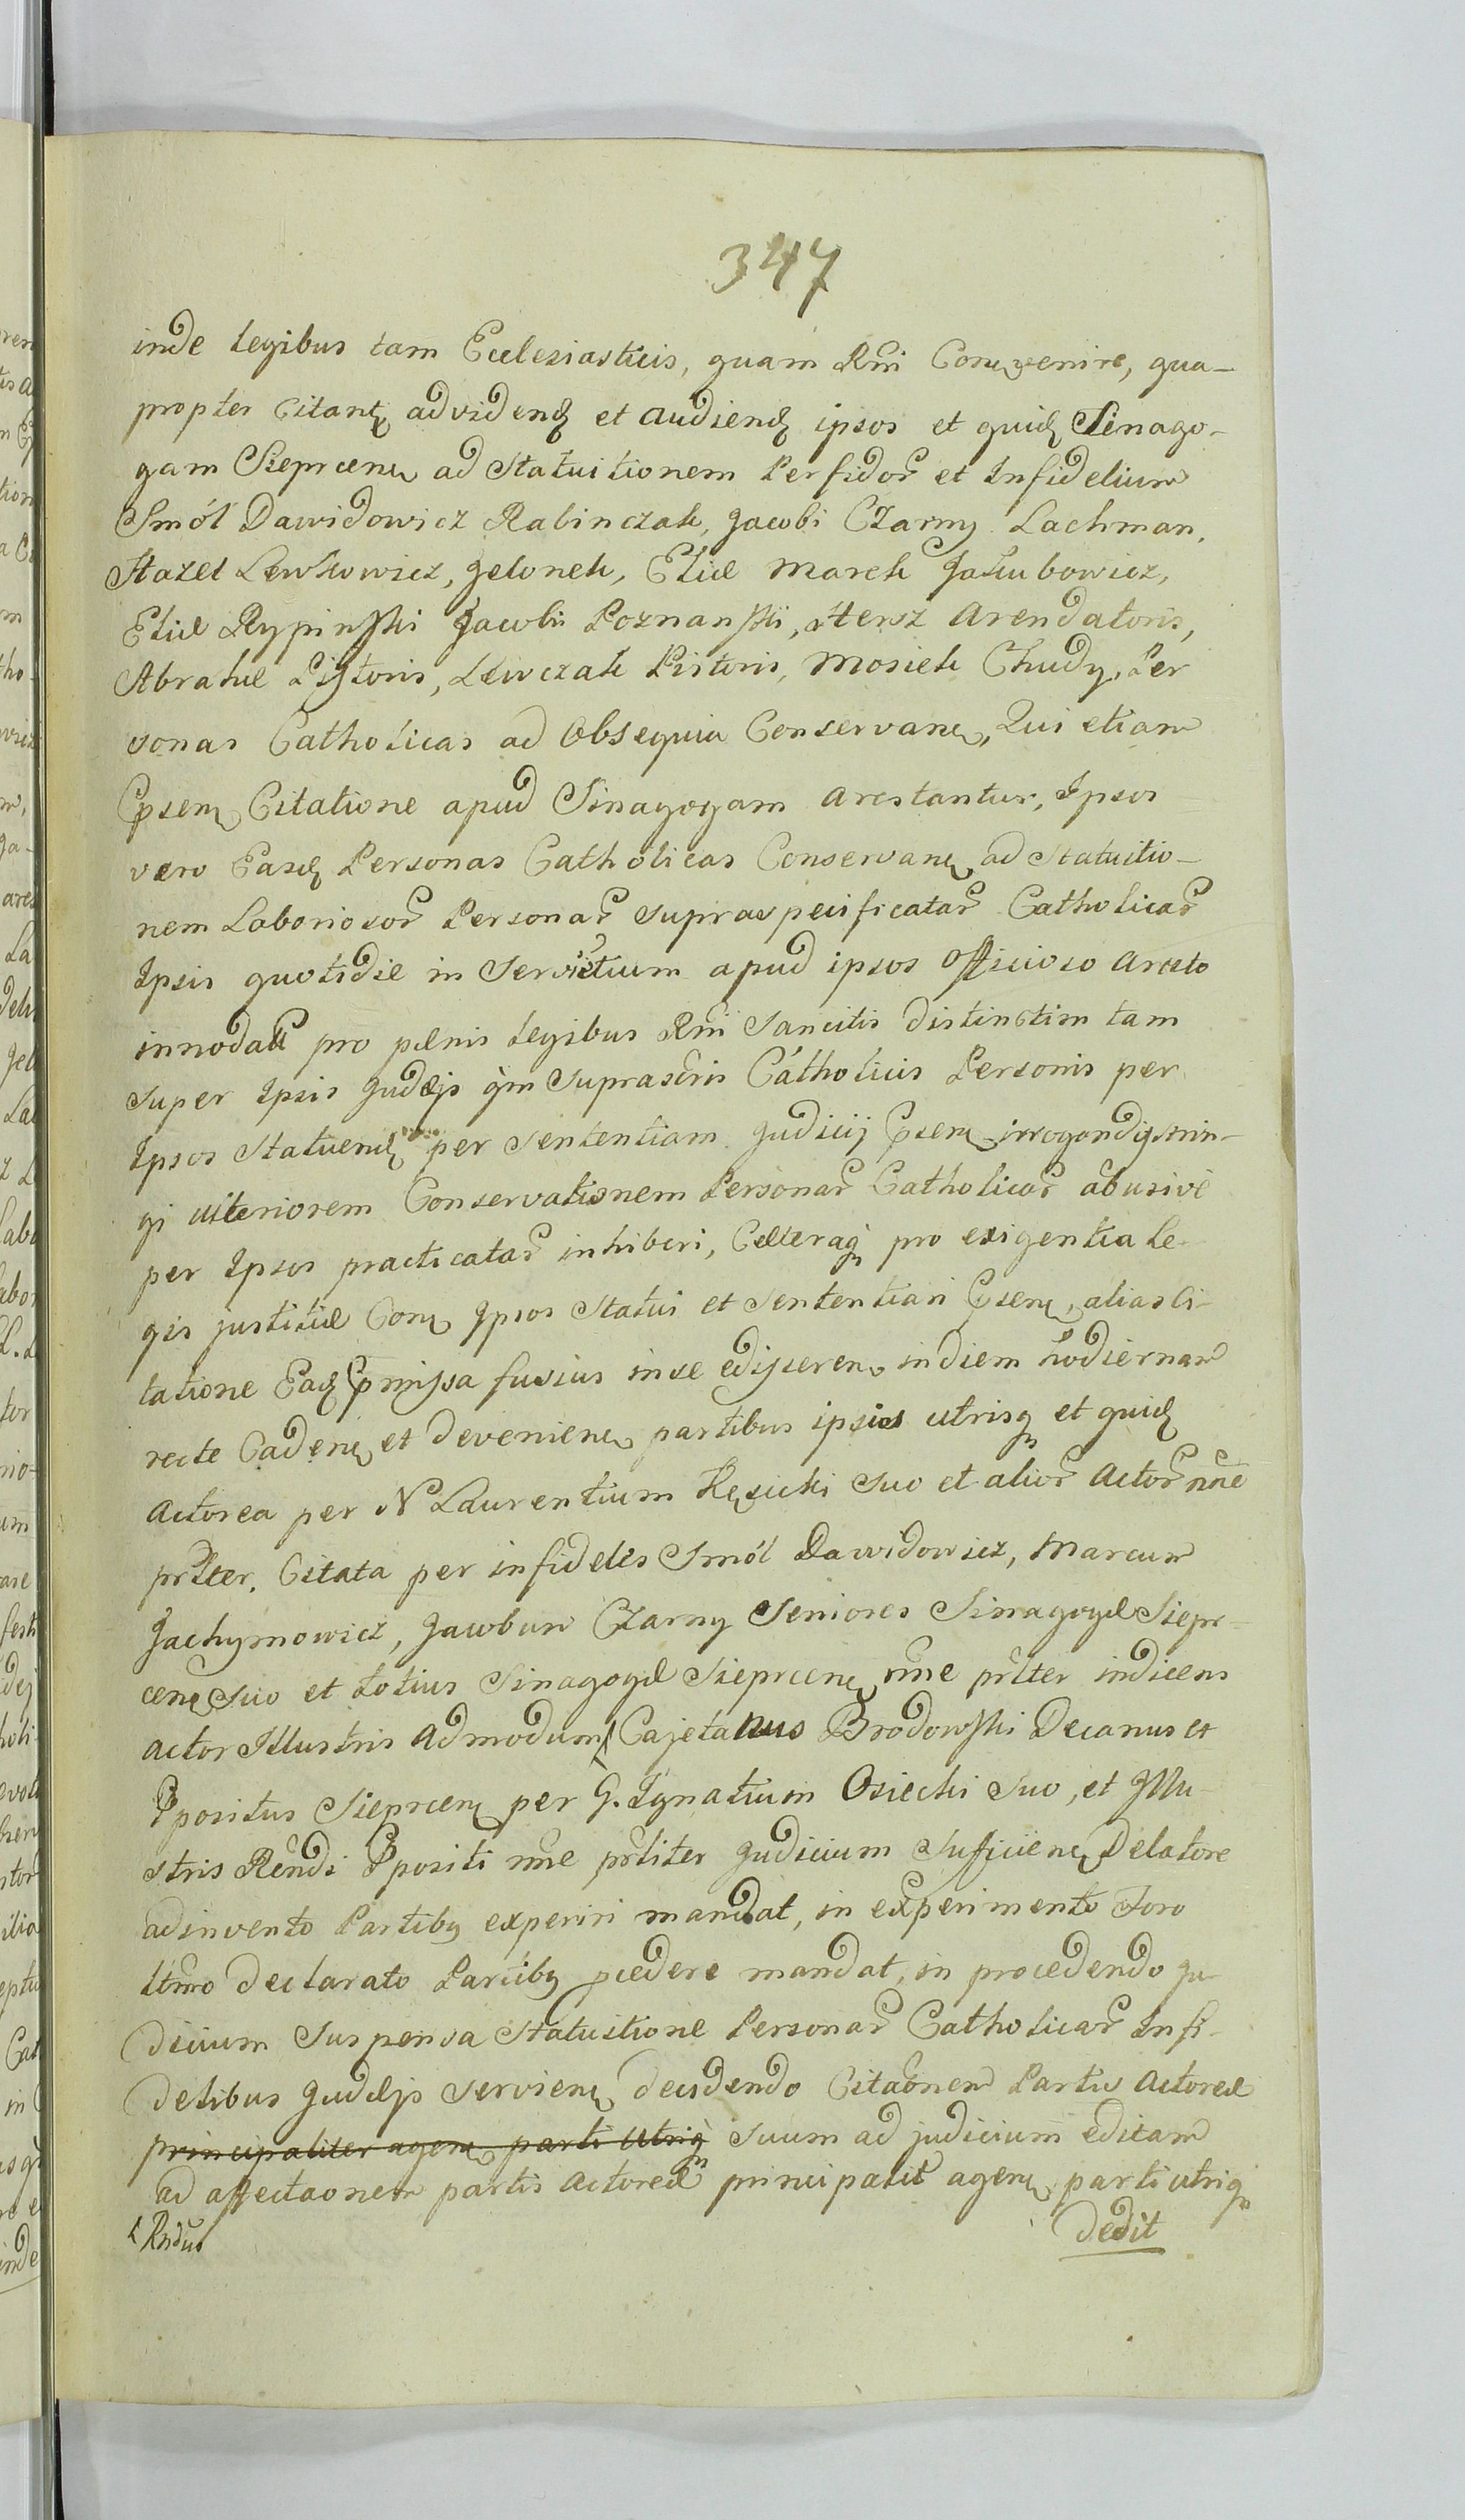 347
inde legibus tam Ecclesiasticis, quam Rni Convenire, qua-
propter Citant advidend et audiend ipsos et quid Sinago-
gam Sieprcen ad Statuitionem Perfidor et Infidelium
Smól Dawidowicz Rabinczak, Jacobi Czarny Lachman,
Hazel Lewkowicz, Jelonek, Eliæ Marek Jakubowicz,
Eliæ Rypinski Jacobi Poznanski, Hersz Arendatoris,
Abrahæ Pistoris, Lewczak Pistoris, Mosiek Chudy, Per
sonas Catholicas ad Obsequia Conservan, Qui etiam
Psen Citatione apud Sinagogam arestantur, Ipsos
vero Easd Personas Catholicas Conservan ad Statuitio-
nem Laboriosor Personar supraspecificatar Catholicar
Ipsis quotidie in Servitium apud ipsos Officioso Aresto
innodatt pro pænis legibus Rni Sancitis distinctim tam
super Ipsis Judæjs qm suprascris Catholicis Personis per
Ipsos Statuend per Sententiam Judicij Psen irrogandis, Strin-
gi ulteriorem Conservationem Personar Catholicar abusive
per Ipsos practicatar inhiberi, Cæteraq pro exigentia le-
gis justitiæ Con Ipsos Statui et Sententiari Psen, alias Ci-
tatione Ead Pmissa fusius in se edisseren, in diem hodiernam
recte Caden et devenien partibus ipsis utrisq et quid
Actorea per N Laurentium Kęsicki suo et alior Actor nne
prlter. Citata per infideles Smól Dawidowicz, Marcum
Jachymowicz, Jacobum Czarny Seniores Sinagogæ Siepr-
cen Suo et totius Sinagogæ Sieprcen nne prlter indicens
actor Illustris Admodum Cajetanus Brodowski Decanus et
Ppositus Sieprcen per G. Ignatium Osiecki suo, et Illu-
stris Rendi Ppositi nne prliter Judicium Suficien Delatore
adinvento Partiby experiri mandat, in experimento Foro
ltmo declarato Partiby pcedere mandat, in procedendo Ju-
dicium Suspensa Statuitione Personar Catholicar Infi-
delibus Judæjs servien decidendo Citaonem Partis Actoreæ
principaliter agen parti utriq suum ad judicium editam
ad affectaonem partis Actoreæ principalit agen parti utriq
Rndus
dedit